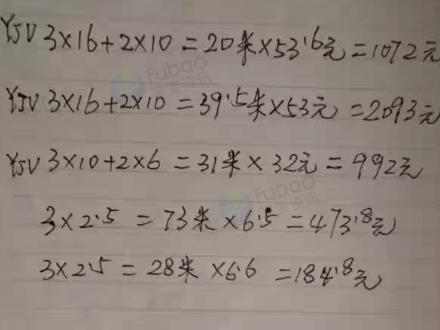 YJV 3×16+2×10=20米×53.6元=1072元
YJV 3×16+2×10=39.5米×53元=2093元
YJV 3×10+2×6=31米×32元=992元
3×2.5=73米×6.5=473.8元
3×2.5=28米×6.6=184.8元
fubao
fubao